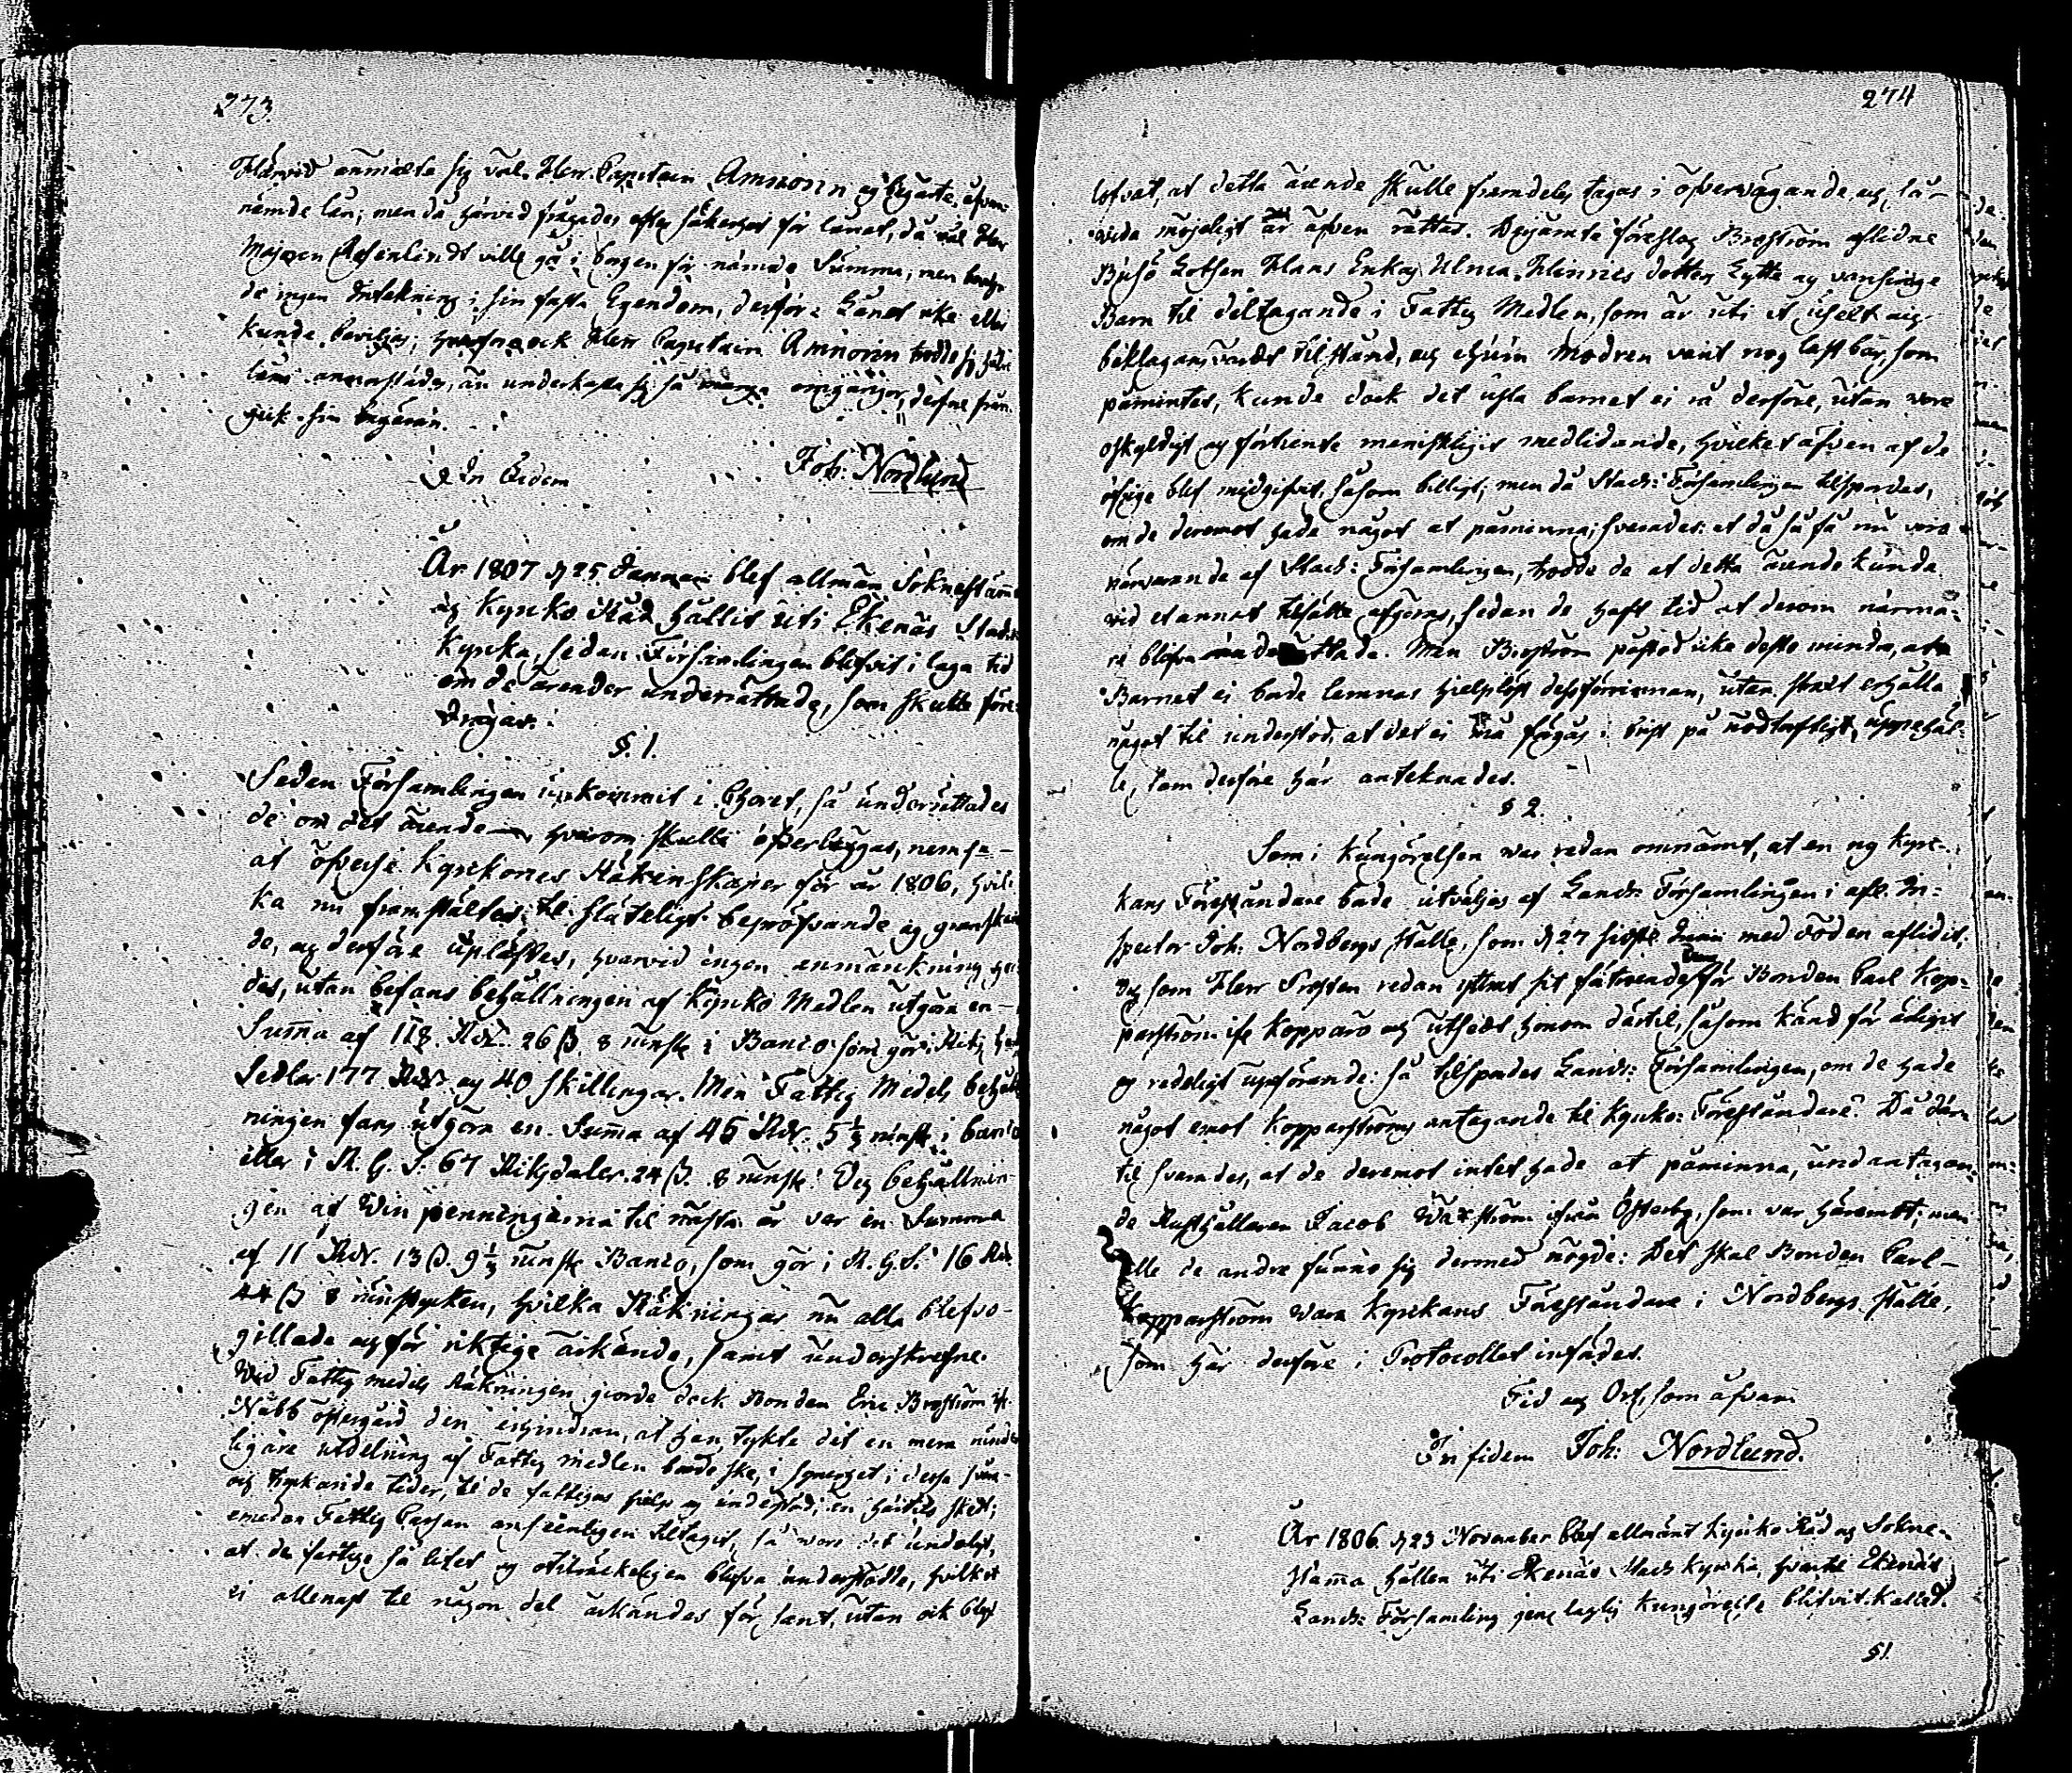 273.
Härvid anmälte sig väl Herr Capitain Amnorin og begärte, ofvan-
nämde lån; men då härvid frågades efter säkerhet för lånet, då väl Herr
Majoren Aschenlindt ville gå i borgen för nämde Summa, men
de ingen Intekning i sin fasta Egendom, derföre Lånet icke eller
kunde beviljas; hvarföre ock Herr Capitain Amnorin trodde sig
låna annorstädes, än underkasta sig så många omgångor, derföre från-
geck sin begäran.
In Fidem Joh: Nordlund
År 1807 d 25 Januarii blef allmän Soknestämma
og Kyrko Råd hållit uti Ekenäs Stads
Kyrka, sedan Församlingen blifvit i laga tid
om de ärender underrättade, som skulle före-
dragas.
§. 1.
Sedan Församlingen inkommit i Choret, så underrättades
de om det ärende, hvarom skulle öfverläggas, nemli-
at öfverse Kyrkones Räkenskaper för år 1806, hvil-
ka nu framstältes til slúteligt bepröfvande og granskan
de, og derföre uplästes, hvarvid ingen anmärkning
des, utan befans behållningen af Kyrko Medlen utgöra en
Summa af 118 Rdr. 26 β. 8 runst. i Banco som gör i Riks
Sedlar 177 Rdr. og 40 skillingar. Men Fattig Medels behåll
ningen fans utgöra en Summa af 45 Rdr. 5 1/3 runst. i banco
eller i R. G. S. 67 Riksdaler. 24 β. 8 runst. Og behållnin-
gen af Vin penningarna til nästa år var en Summa
af 11 Rdr. 13 β. 9 1/3 runst. Banco, som gör i R. G. S. 16 Rdr.
44 β 8 runstycken, hvilka Räkningar nu alla blefvo
gillade og för riktige ärkände, samt underskrefne.
Vid Fattig medels Räkningen giorde dock Bonden Eric Broström
Näbb östergård den erhindran, at han tykte det en mera
ligare utdelning af Fattig medlen borde ske, i synnerhet i dessa
og tryckande tider, til de fattigas hielp og understöd, än härtils skedt;
emedan Fattig Cassan ansenligen tiltagit, så vore det
at de fattige så litet og otilräckeligen blefvo understödde, hvilket
ei allenast til någon del ärkändes för sant, utan ock blef
274
lofvat, at detta ärende skulle framdeles tagas i öfvervägande, og, så
vida möjeligt är äfven rättas. Derjämte föreslog Broström aflidne
Björsö Lotsen Hans Enkas Ulrica Hinricsdotters Lytta og vansinnige
Barn til deltagande i Fattig Medlen, som är uti et uselt og
beklagansvärdt tilstånd, og ehuru Modren varit nog lastbar, som
påmintes, kunde dock det usla barnet ei rå derföre, utan vore
oskyldigt og förtiente menskligit medlidande, hvilket äfven af de
öfrige blef medgifvit, såsom billigt; men då Stads: Församlingen tilspordes,
om de deremot hade något at påminna; svarades: at då så få nu voro
närvarande af Stads: Församlingen, trodde de at detta ärende kunde
vid et annat tilfälle afgöras, sedan de haft tid at derom närma-
re blifva underrättade. Men Broström påstod icke desto mindre, at
Barnet ei borde lemnas hjelplöst dessförinnan, utan straxt erhålla
något til understöd, at det ei må förgås i brist på nödtorftigt uppehäl-
le, som derföre här anteknades.
§ 2.
Som i kungörelsen var redan omnämt, at en ny Kyr-
kans Föreståndare borde utväljas af Lands Församlingen i afl. In-
spector Joh: Nordbergs ställe, som d 27 sistl. Junii med döden aflidit.
Og som Herr Prosten redan ytrat sit förtroende för Bonden Carl Kop-
parström ifr. Kopparö og utsedt honom därtil, såsom känd för ärligit
og redeligt upförande: så tilspordes Lands: Församlingen, om de hade
något emot Kopparströms antagande til Kyrko: Föreståndare? Då där-
til svarades, at de deremot intet hade at påminna, undantagan-
de Rusthållaren Jacob Wäxström ifrån Österby, som var häremot; men
alle de andre funno sig dermed nögde: Det skal Bonden Carl
Kopparström vara Kyrkans Föreståndare i Nordbergs ställe,
som här derföre i Protocollet infördes.
Tid og Ort, som ofvan
In fidem Joh: Nordlund.
År 1806 d 23 November blef allmänt Kyrko Råd og Sokne-
stämma hållen uti Ekenäs Stads Kyrka, hvartil Ekenäs
Lands: Församling genom laglig kungörelse blifvit kallad.
§1.